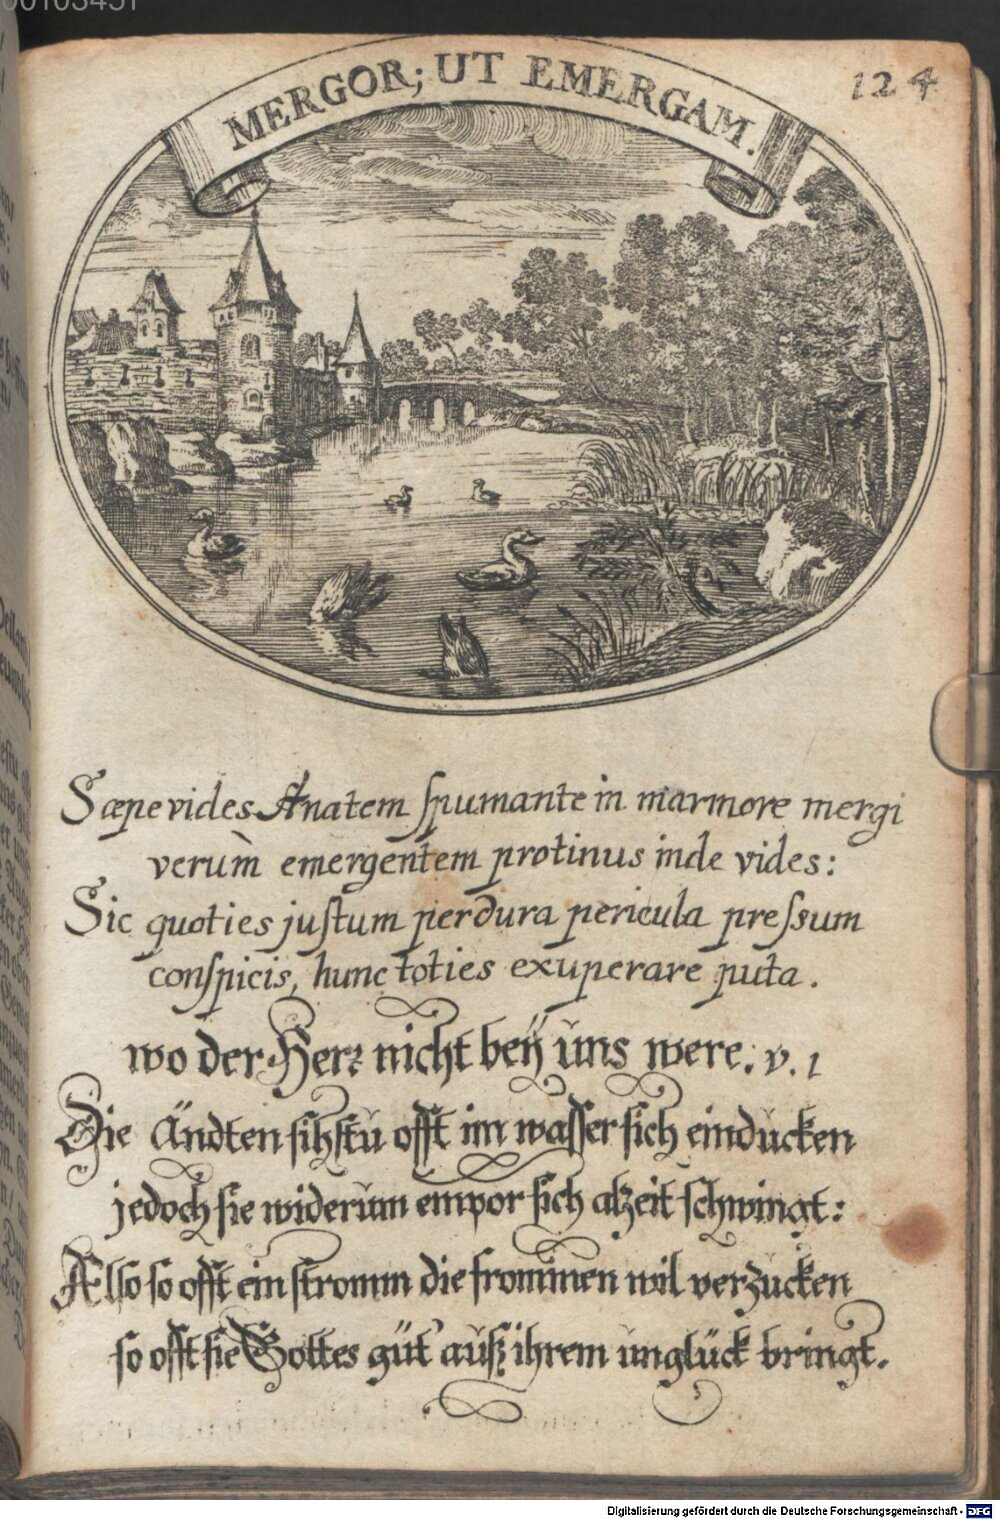 00103451
124
MERGOR; UT EMERGAM.
Sæpe vides Anatem ſpumante in marmore mergi
verùm emergentem protinus inde vides:
Sic quoties juſtum per dura pericula preſsum
conſpicis, hunc toties exuperare puta.
wo der Herr nicht beÿ uns were. v. 1
Die Ändten ſihſtu offt im waſſer ſich einducken
jedoch ſie widerum empor ſich alzeit ſchwingt:
Alſo ſo offt ein ſtromm die frommen wil verzucken
ſo offt ſie Gottes güt' außz ihrem unglück bringt.
Digitalisierung gefördert durch die Deutsche Forschungsgemeinschaft - DFG